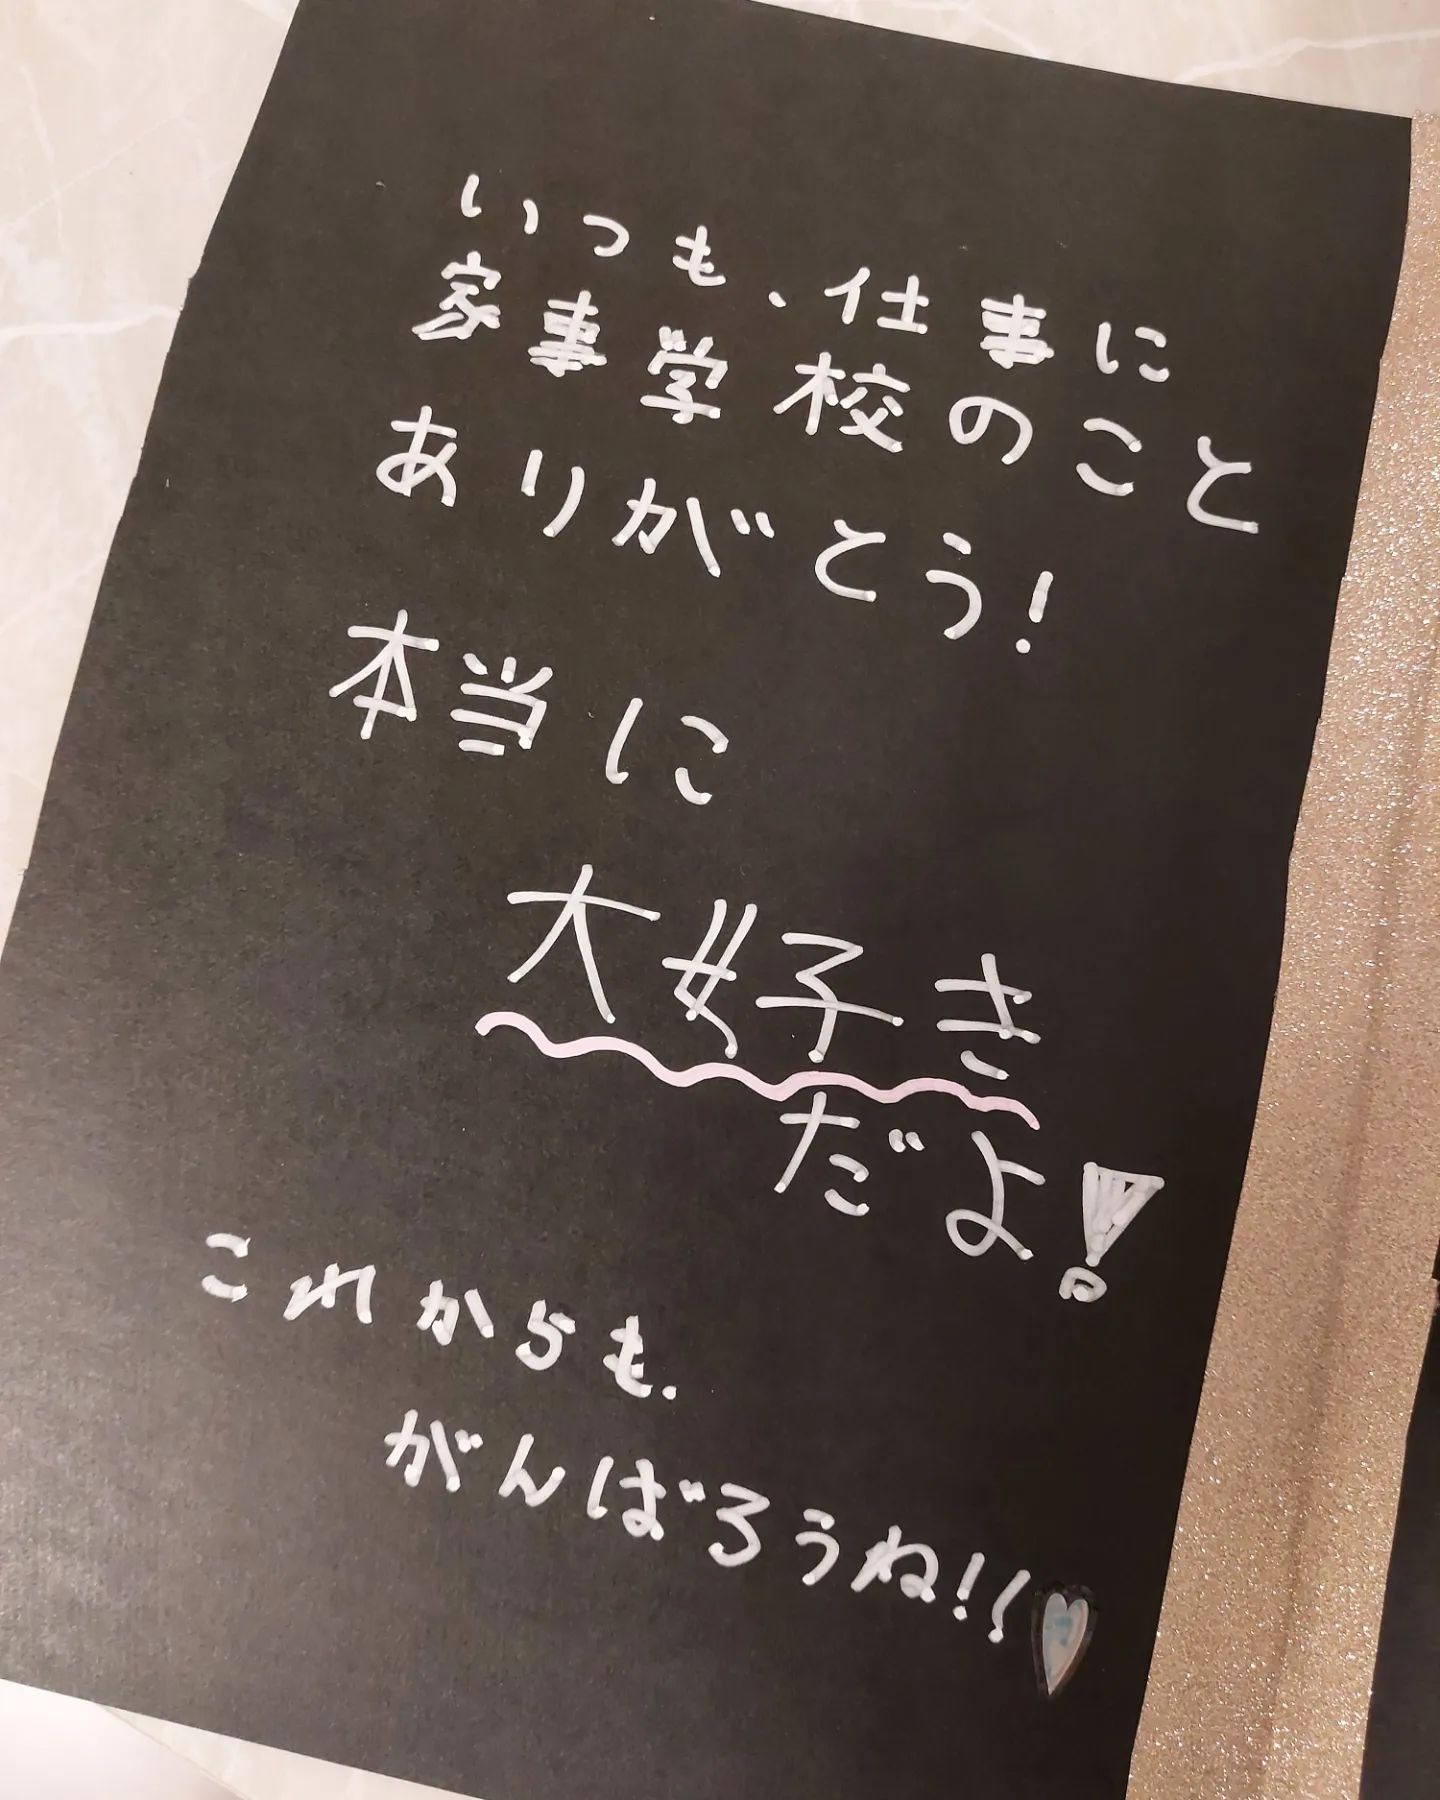 いつも、仕事に
家事学校のこと
ありがとう!
本当に
大好き
だよ!
これからも、
がんばろうね!!